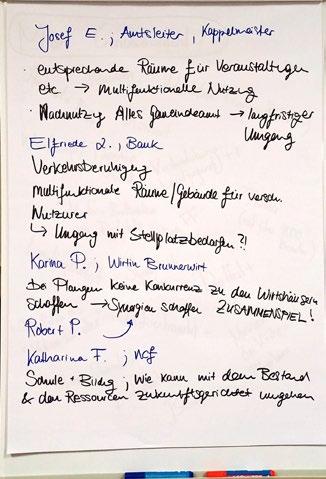 Josef E. ; Amtsleiter , Kappelmeister
· entsprechende Räume für Veranstaltungen
etc → Multifunktionelle Nutzung
· Nachnutzg Altes Gemeindeamt → langfristiger
Umgang
Elfriede L. ; Bank
Verkehrsberuhigung
multifunktionale Räume/Gebäude für versch.
Nutzer
↳ Umgang mit Stellplatzbedarfen ?!
Karina P. ; Wirtin Brunnerwirt
Bei Plangen keine Konkurrenz zu den Wirtshäusern
schaffen → Synergien schaffen ZUSAMMENSPIEL!
Robert P.
Katharina F. ; NGF
Schule + Bildg ; Wie kann mit dem Bestand
& den Ressourcen zukunftsgerichtet umgehen